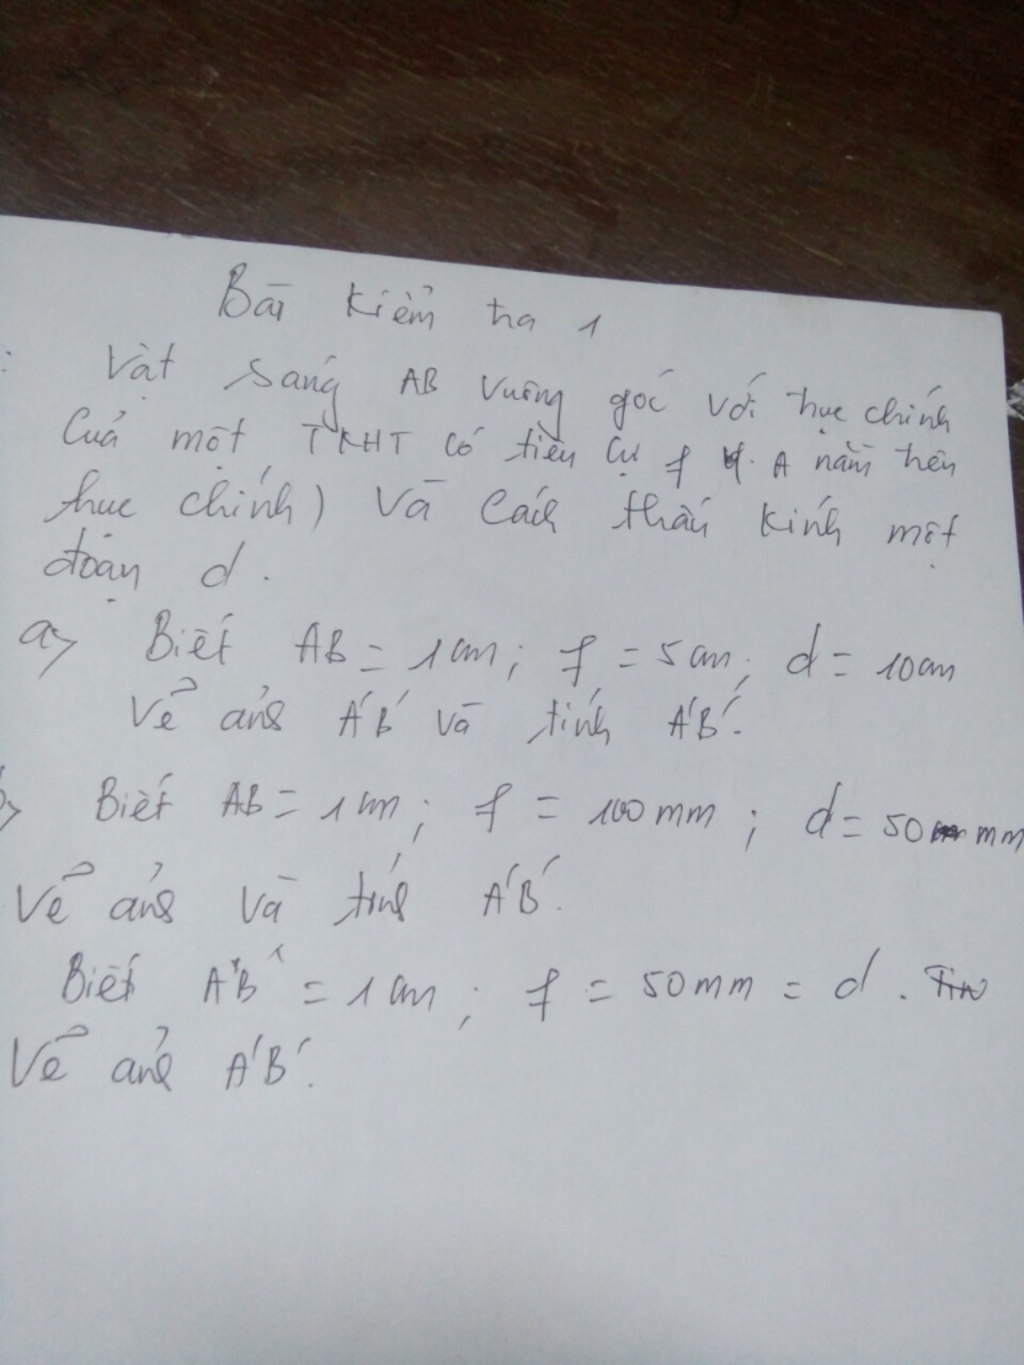 Bài kiểm tra 1
: Vật sáng AB vuông góc với trục chính
Của một TKHT có tiêu cự f A nằm trên
trục chính) Và Cách thấu kính một
đoạn d.
a> Biết AB = 1cm; f = 5cm; d = 10cm
Vẽ ảnh A'B' và tính A'B'.
> Biết AB = 1cm; f = 100mm; d = 50 mm
Vẽ ảnh Và tính A'B'.
Biết A'B' = 1cm; f = 50mm = d.
Vẽ ảnh A'B'.